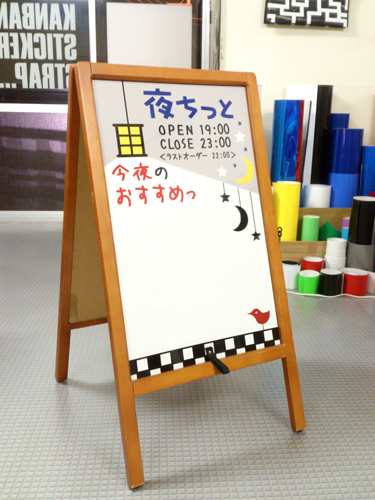 KANBAN
STICKER
STRAP...
夜ちっと
OPEN 19:00
CLOSE 23:00
<ラストオーダー 22:00>
今夜の
おすすめっ